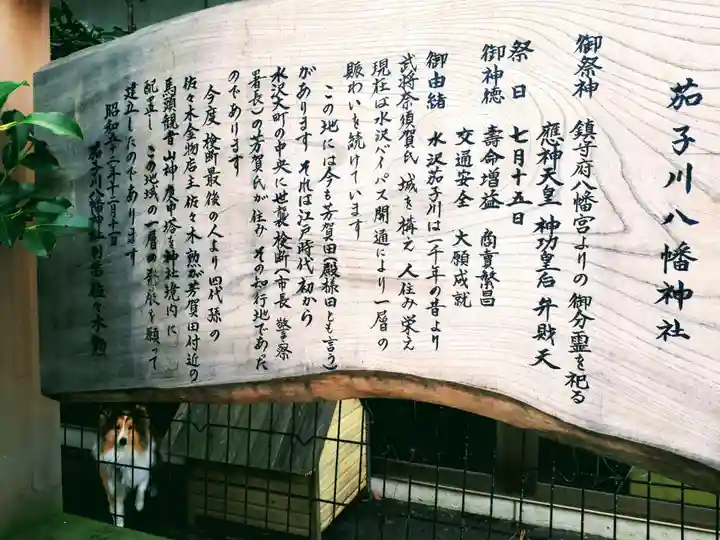 茄子川八幡神社
御祭神 鎮守府八幡宮よりの御分霊を祀る
應神天皇 神功皇后 弁財天
祭日 七月十五日
御神徳 壽命増益 商賣繁昌
交通安全 大願成就
御由緒 水沢茄子川は一千年の昔より
武将奈須賀氏 城を構え 人住み栄え
現在は水沢バイパス開通により一層の
賑わいを続けています
この地には今も芳賀田(殿様田とも言う)
があります それは江戸時代初から
水沢大町の中央に世襲検断(市長 警察
署長)の芳賀氏が住み その知行地であった
のであります
今度 検断最後の人より四代孫の
佐々木金物店主佐々木勲が芳賀田付近の
馬頭観音 山神 庚申塔を神社境内に
配置し この地域の一層の発展を願って
建立したのであります
昭和五十二年十二月十二日
茄子川八幡神社 別当 佐々木勲